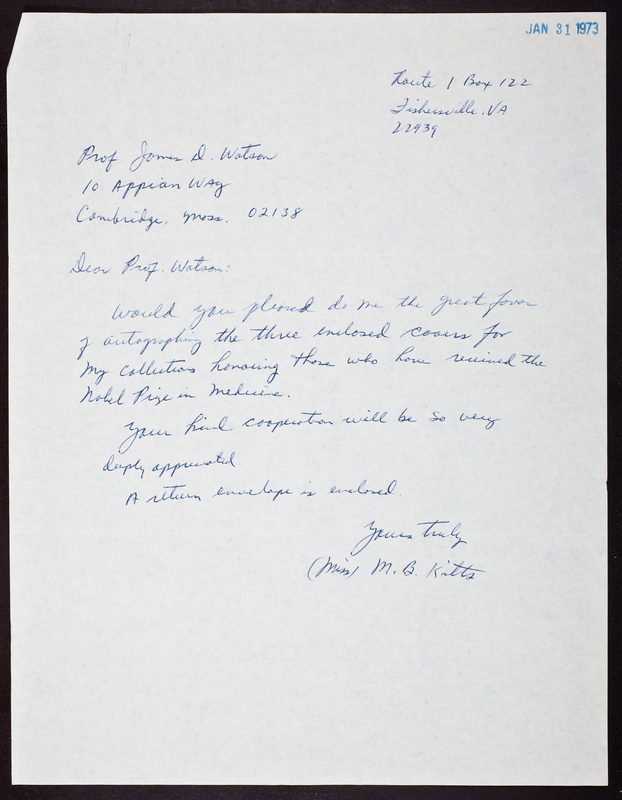 JAN 31 1973
Route 1 Box 122
Fishersville, VA
22939
Prof James D. Watson
10 Appian Way
Cambridge, Mass. 02138
Dear Prof. Watson:
Would you pleased do me the great favor
of autographing the three enclosed covers for
my collections honoring those who have received the
Nobel Prize in Medicine.
Your kind cooperation will be so very
deeply appreciated.
A return envelope is enclosed.
Yours truly
(Miss) M. B. Kitts